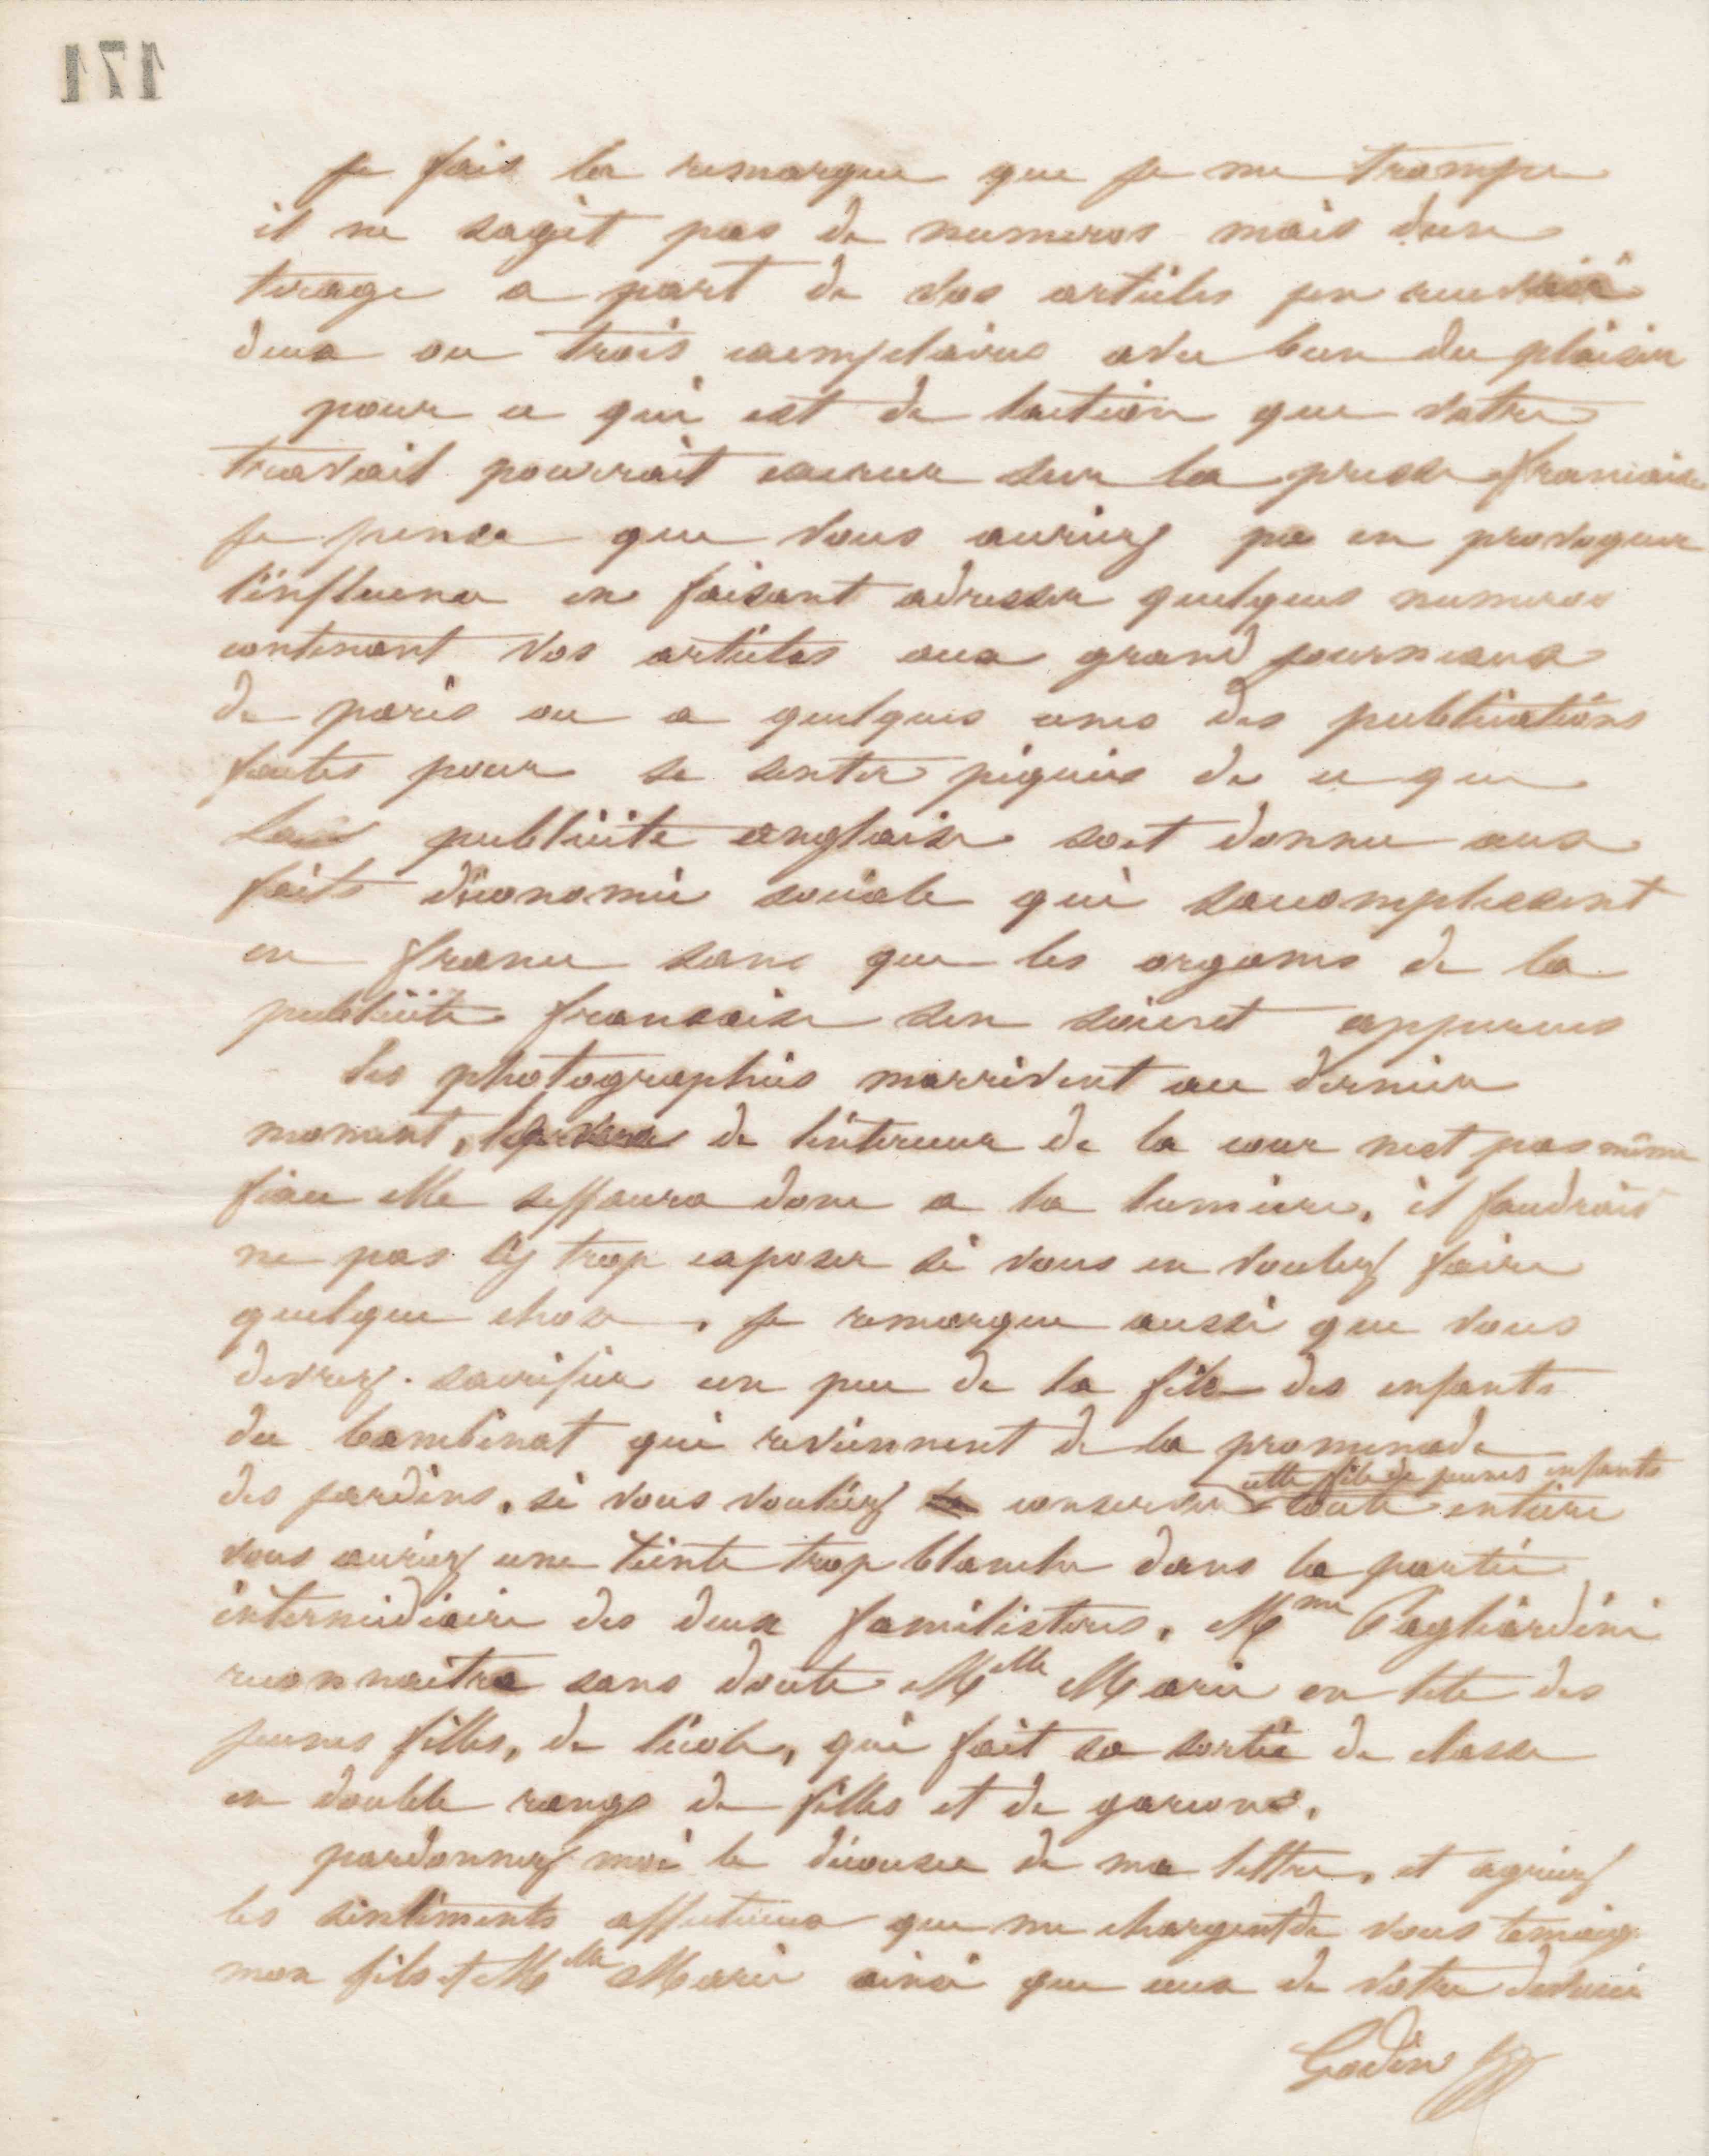 171
je fais la remarque que je me trompe
il ne sagit pas de numeros mais dun
tirage a part de vos articles jen
deux ou trois exemplaires avec bien du plaisir
pour ce qui est de laction que votre
travail pourrait exercer sur la presse francaise
je pense que vous auriez pu en provoquer
l'influence en faisant adresser quelques numeros
contenant vos articles aux grand journeaux
de paris ou a quelques unes des publications
faites pour se sentir piquées de ce que
publicité anglaise soit donnee aux
faits d'économie sociale qui saccomplissent
en france sans que les organes de la
publicité francaise sen soient appercues
les photographies marrivent au dernier
moment, de linterieur de la cour nest pas même
fixee elle seffacera donc a la lumière, il faudrait
ne pas trop exposer si vous en voulez faire
quelque chose, je remarque aussi que vous
devrez sacrifier un peu de la file des enfants
du bambinat qui reviennent de la promenade
des jardins, si vous vouliez conserver cette file de jeunes enfants toute entière
vous auriez une teinte trop blanche dans la partie
intermédiaire des deux familistères, Mme Pagliardini
reconnaitra sans doute Mlle Marie en tete des
jeunes filles, de l'école, qui fait sa sortie de classe
en double rangs de filles et de garcons.
pardonnez moi le décousu de ma lettre, et agréez
les sentiments affectueux que me chargent de vous temoig
mon fils et Mlle Marie ainsi que ceux de votre devoué
Godin